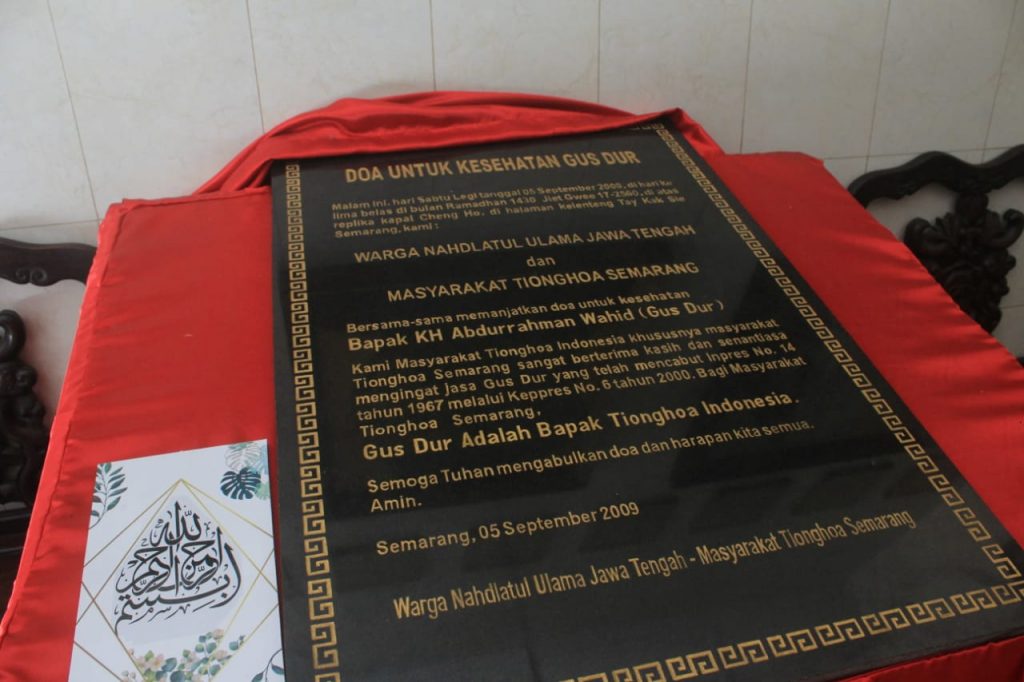 DOA UNTUK KESEHATAN GUS DUR
Malam ini, hari Sabtu Legi tanggal 05 September 2009, di hari ke
lima belas di bulan Ramadhan 1430 Jiet Gwee 17-2560, di atas
replika kapal Cheng Ho, di halaman kelenteng Tay Kak Sie
Semarang, kami :
WARGA NAHDLATUL ULAMA JAWA TENGAH
dan
MASYARAKAT TIONGHOA SEMARANG
Bersama-sama memanjatkan doa untuk kesehatan
Bapak KH Abdurrahman Wahid (Gus Dur)
Kami Masyarakat Tionghoa Indonesia khususnya masyarakat
Tionghoa Semarang sangat berterima kasih dan senantiasa
mengingat jasa Gus Dur yang telah mencabut Inpres No. 14
tahun 1967 melalui Keppres No. 6 tahun 2000. Bagi Masyarakat
Tionghoa Semarang,
Gus Dur Adalah Bapak Tionghoa Indonesia.
Semoga Tuhan mengabulkan doa dan harapan kita semua.
Amin.
Semarang, 05 September 2009
Warga Nahdlatul Ulama Jawa Tengah - Masyarakat Tionghoa Semarang
بسم الله الرحمن الرحيم